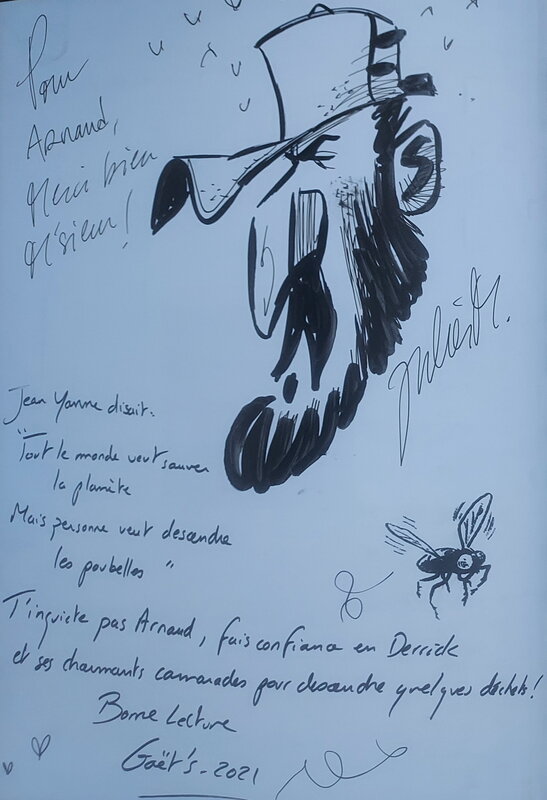 Pour
Arnaud,
Merci bien
M'sieur !
Jean Yanne disait :
"Tout le monde veut sauver
la planète
Mais personne veut descendre
les poubelles "
T'inquiète pas Arnaud, fais confiance en Derrick
et ses charmants camarades pour descendre quelques déchets !
Bonne Lecture
Gaët's - 2021